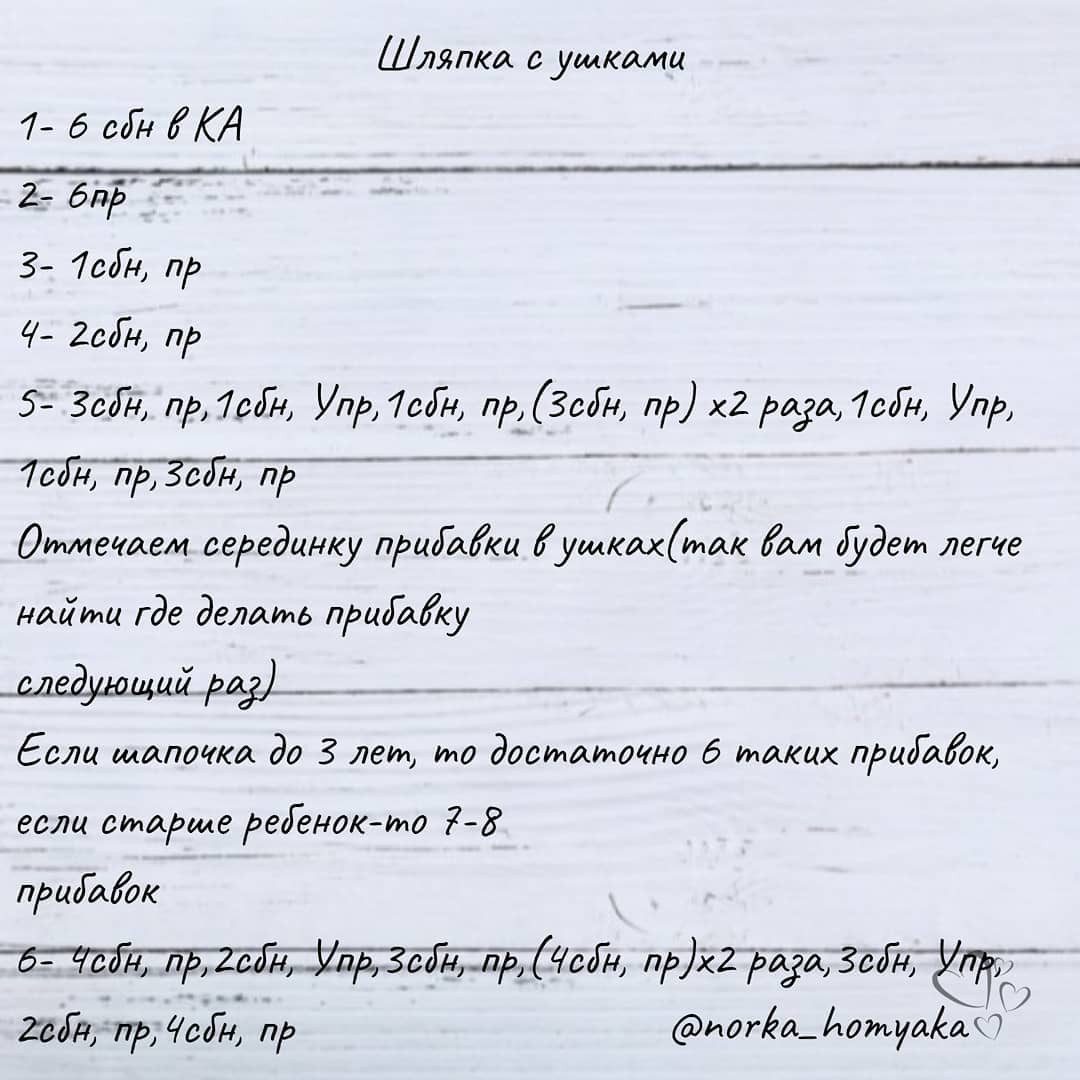 Шляпка с ушками
1- 6 сбн в КА
2- 6пр
3- 1сбн, пр
4- 2сбн, пр
5- 3сбн, пр,1сбн, Упр,1сбн, пр,(3сбн, пр) х2 раза,1сбн, Упр,
1сбн, пр,3сбн, пр
Отмечаем серединку прибавки в ушках(так вам будет легче
найти где делать прибавку
следующий раз)
Если шапочка до 3 лет, то достаточно 6 таких прибавок,
если старше ребенок-то 7-8
прибавок
6- 4сбн, пр,2сбн, Упр,3сбн, пр,(4сбн, пр)х2 раза,3сбн, Упр,
2сбн, пр,4сбн, пр
@norka_homyaka